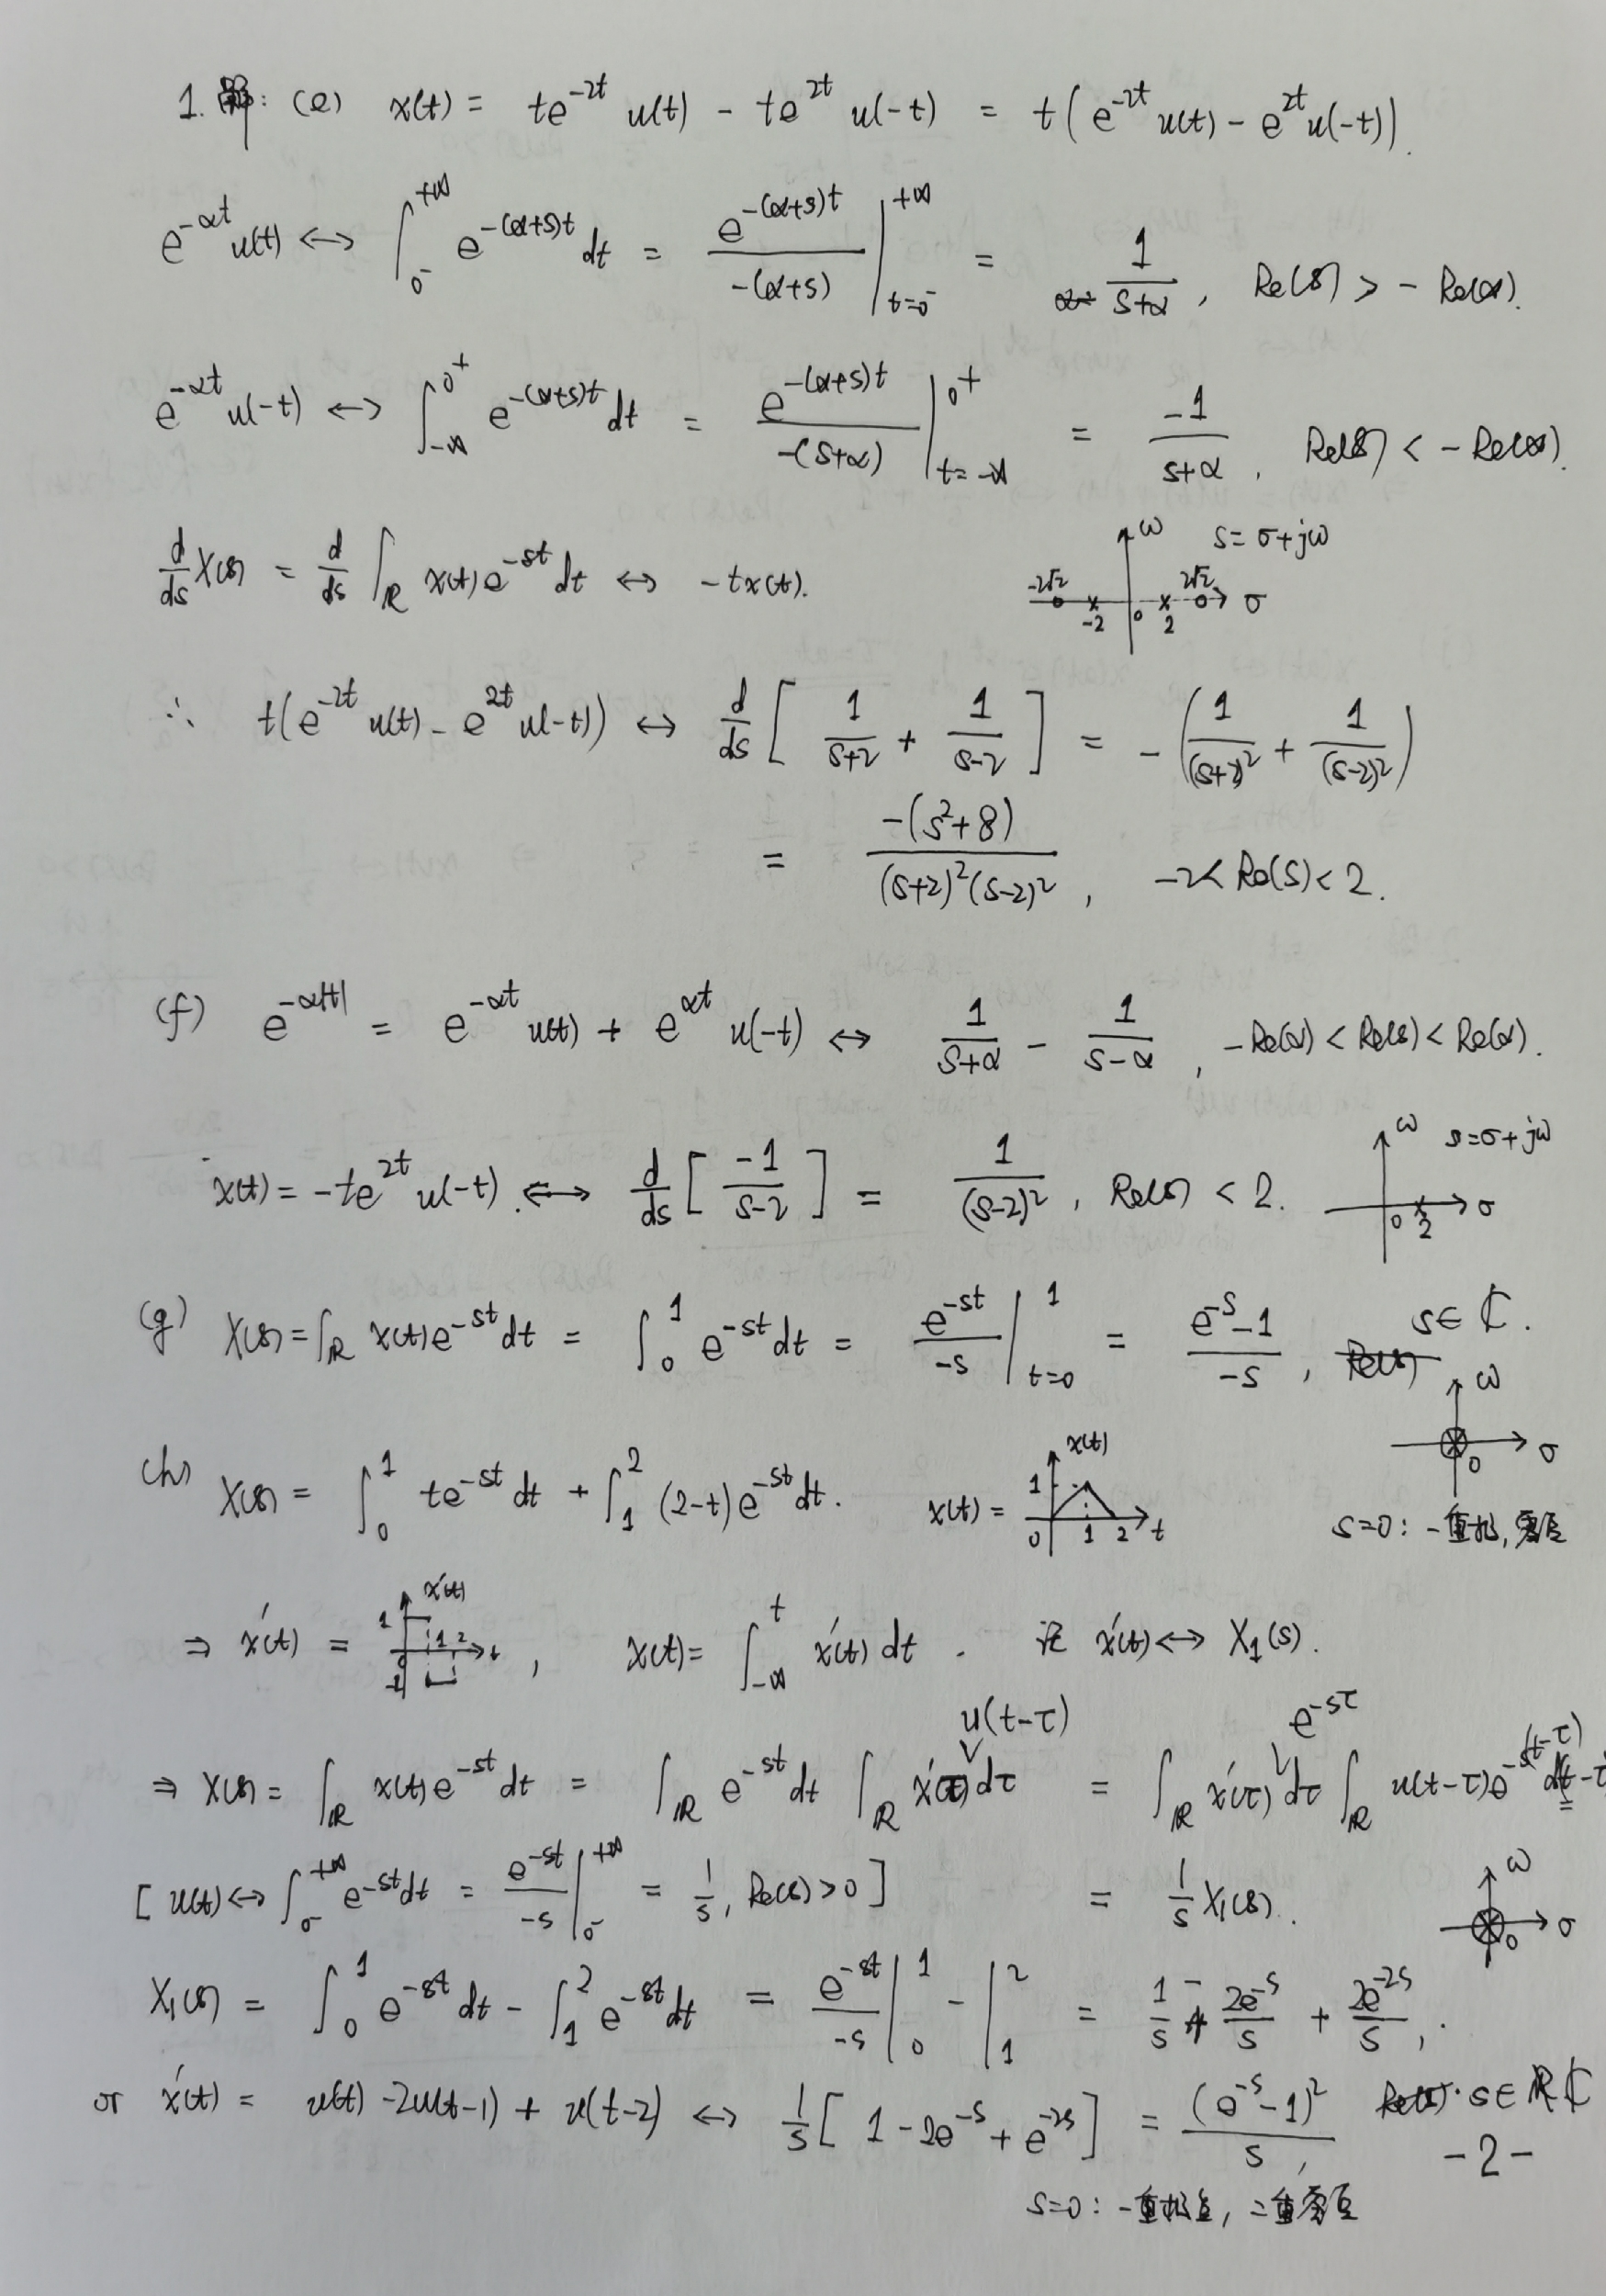 1. 解: (e) x(t) = te^{-2t} u(t) - te^{2t} u(-t) = t(e^{-2t} u(t) - e^{2t} u(-t)).
e^{-αt} u(t) ↔ ∫_{0^-}^{+∞} e^{-(α+s)t} dt = e^{-(α+s)t} / -(α+s) |_{t=0^-}^{+∞} = 1/(s+α), Re(s) > -Re(α).
e^{-αt} u(-t) ↔ ∫_{-∞}^{0^+} e^{-(α+s)t} dt = e^{-(α+s)t} / -(s+α) |_{t=-∞}^{0^+} = -1/(s+α), Re(s) < -Re(α).
d/ds X(s) = d/ds ∫_ℝ x(t) e^{-st} dt ↔ -tx(t).
ω s = σ+jω
-2√2 -2 0 2 2√2 σ
∴ t(e^{-2t} u(t) - e^{2t} u(-t)) ↔ d/ds [ 1/(s+2) + 1/(s-2) ] = -( 1/(s+2)^2 + 1/(s-2)^2 )
= -(s^2+8) / (s+2)^2(s-2)^2, -2 < Re(s) < 2.
(f) e^{-α|t|} = e^{-αt} u(t) + e^{αt} u(-t) ↔ 1/(s+α) - 1/(s-α), -Re(α) < Re(s) < Re(α).
x(t) = -te^{2t} u(-t). ↔ d/ds [ -1/(s-2) ] = 1/(s-2)^2, Re(s) < 2.
ω s=σ+jω
0 2 σ
(g) X(s) = ∫_ℝ x(t) e^{-st} dt = ∫_0^1 e^{-st} dt = e^{-st}/-s |_{t=0}^1 = (e^{-s}-1)/-s, s∈ℂ.
ω
0 σ
s=0: 一重极点, 零点
(h) X(s) = ∫_0^1 te^{-st} dt + ∫_1^2 (2-t) e^{-st} dt. x(t) =
x(t) 1 0 1 2 t
⇒ x'(t) = , x(t) = ∫_{-∞}^t x'(t) dt. 记 x'(t) ↔ X_1(s).
x'(t) 1 1 2 t -1
⇒ X(s) = ∫_ℝ x(t) e^{-st} dt = ∫_ℝ e^{-st} dt ∫_ℝ x'(τ) u(t-τ) dτ = ∫_ℝ x'(τ) e^{-sτ} dτ ∫_ℝ u(t-τ) e^{-s(t-τ)} d(t-τ
[ u(t) ↔ ∫_{0^-}^{+∞} e^{-st} dt = e^{-st}/-s |_{0^-}^{+∞} = 1/s, Re(s) > 0 ] = 1/s X_1(s).
ω
0 σ
X_1(s) = ∫_0^1 e^{-st} dt - ∫_1^2 e^{-st} dt = e^{-st}/-s |_0^1 - |_1^2 = 1/s - 2e^{-s}/s + 2e^{-2s}/s, .
or x'(t) = u(t) - 2u(t-1) + u(t-2) ↔ 1/s [ 1 - 2e^{-s} + e^{-2s} ] = (e^{-s}-1)^2 / s, s∈ℂ
-2-
s=0: 一重极点, 二重零点